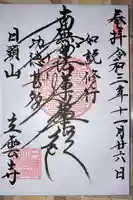 参拝令和三年十一月廿六日
如説修行
南無妙法蓮華経
功徳甚多
日頭山
立雲寺